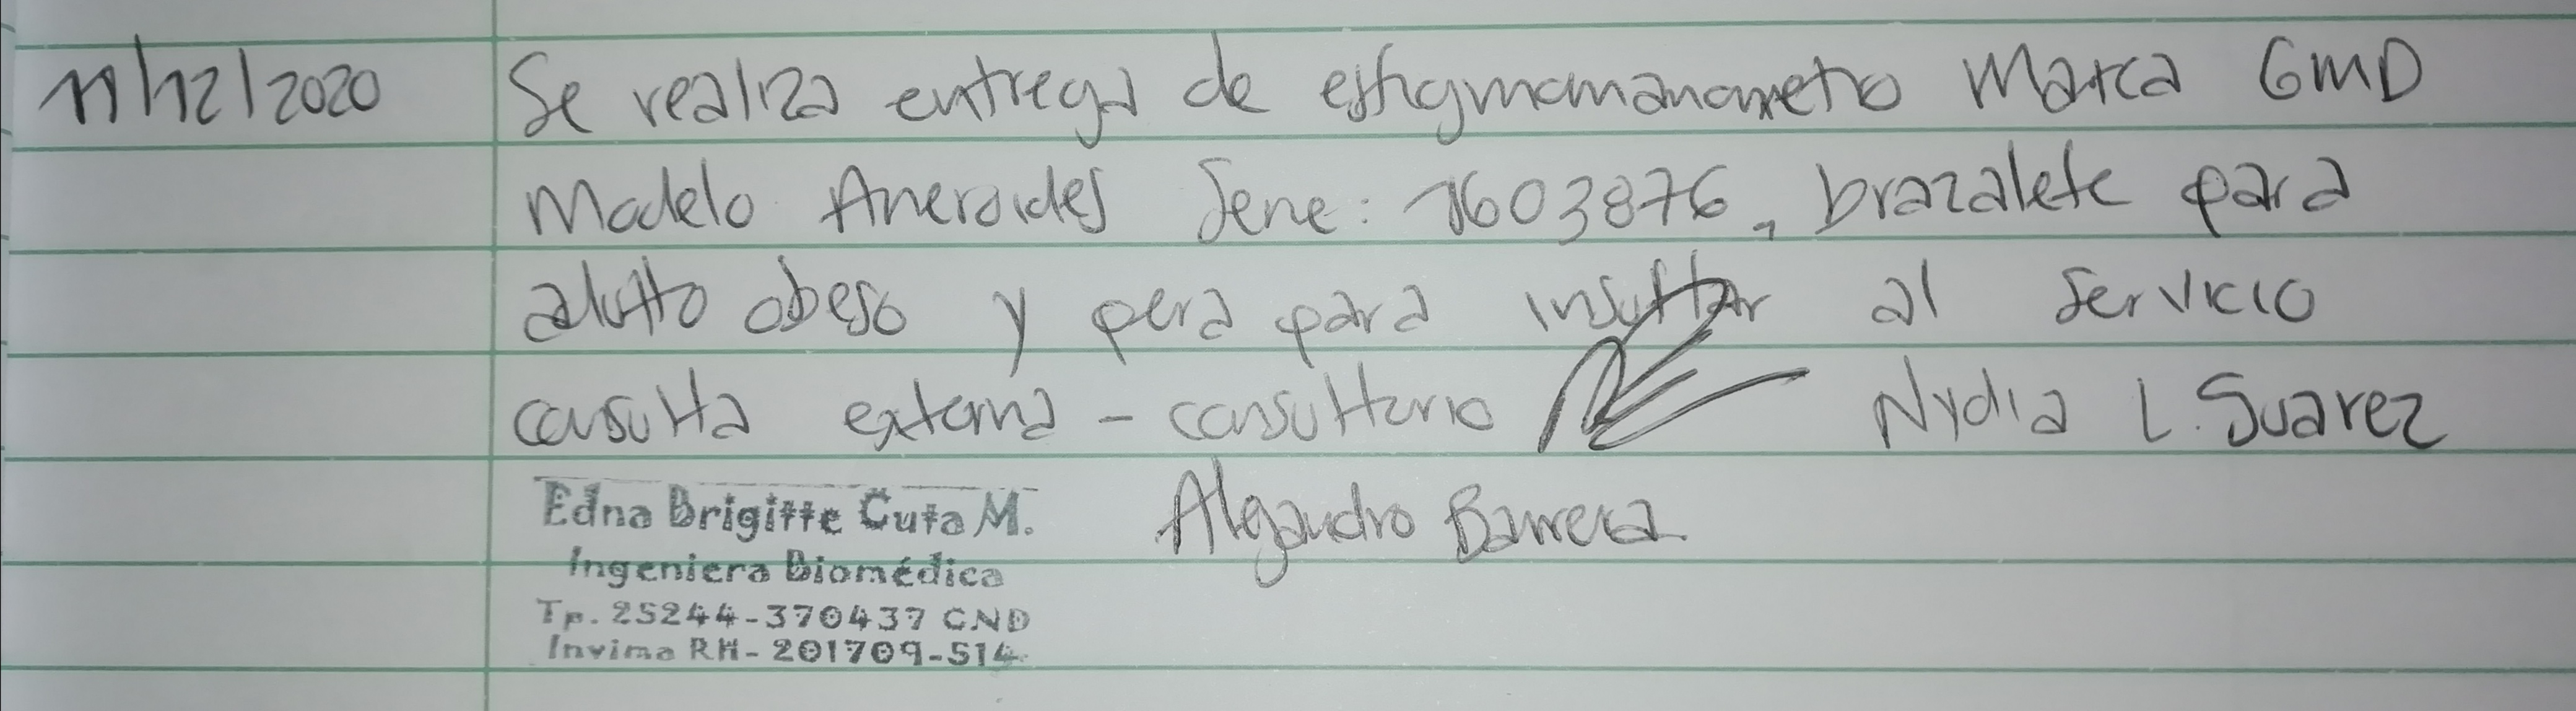 11/12/2020 Se realiza entrega de esfigmomanometro Marca GMD
Modelo Aneroides Serie: 1603876, brazalete para
adulto obeso y pera para insuflar al servicio
consulta externa - consultorio Nydia L. Suarez
Edna Brigitte Cuta M. Alejandro Barrera
Ingeniera Biomédica
Tp. 25244-370437 CND
Invima RH- 201709-514